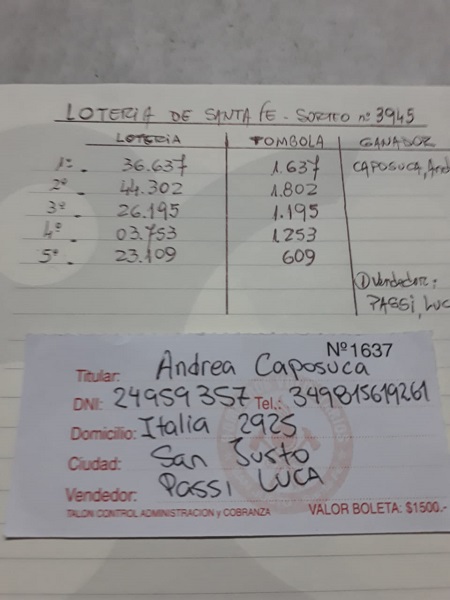 LOTERIA DE SANTA FE - SORTEO nº 3945
LOTERIA TOMBOLA GANADOR
1º - 36.637 1.637 CAPOSUCA, And
2º - 44.302 1.802
3º - 26.195 1.195
4º - 03.753 1.253
5º - 23.109 609
Vendedor:
PASSI, LUC
Nº 1637
Titular: Andrea Caposuca
DNI: 24959357 Tel.: 349815619261
Domicilio: Italia 2925
Ciudad: San Justo
Vendedor: Passi LUCA
TALON CONTROL ADMINISTRACION y COBRANZA VALOR BOLETA: $1500.-